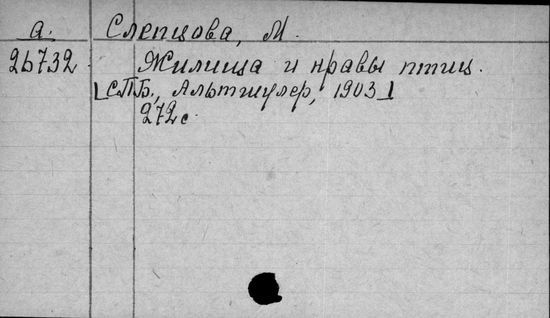 а. Слепцова, М.
26732 Жилища и нравы птиц.
[СПБ., Альтшулер, 1903]
272 с